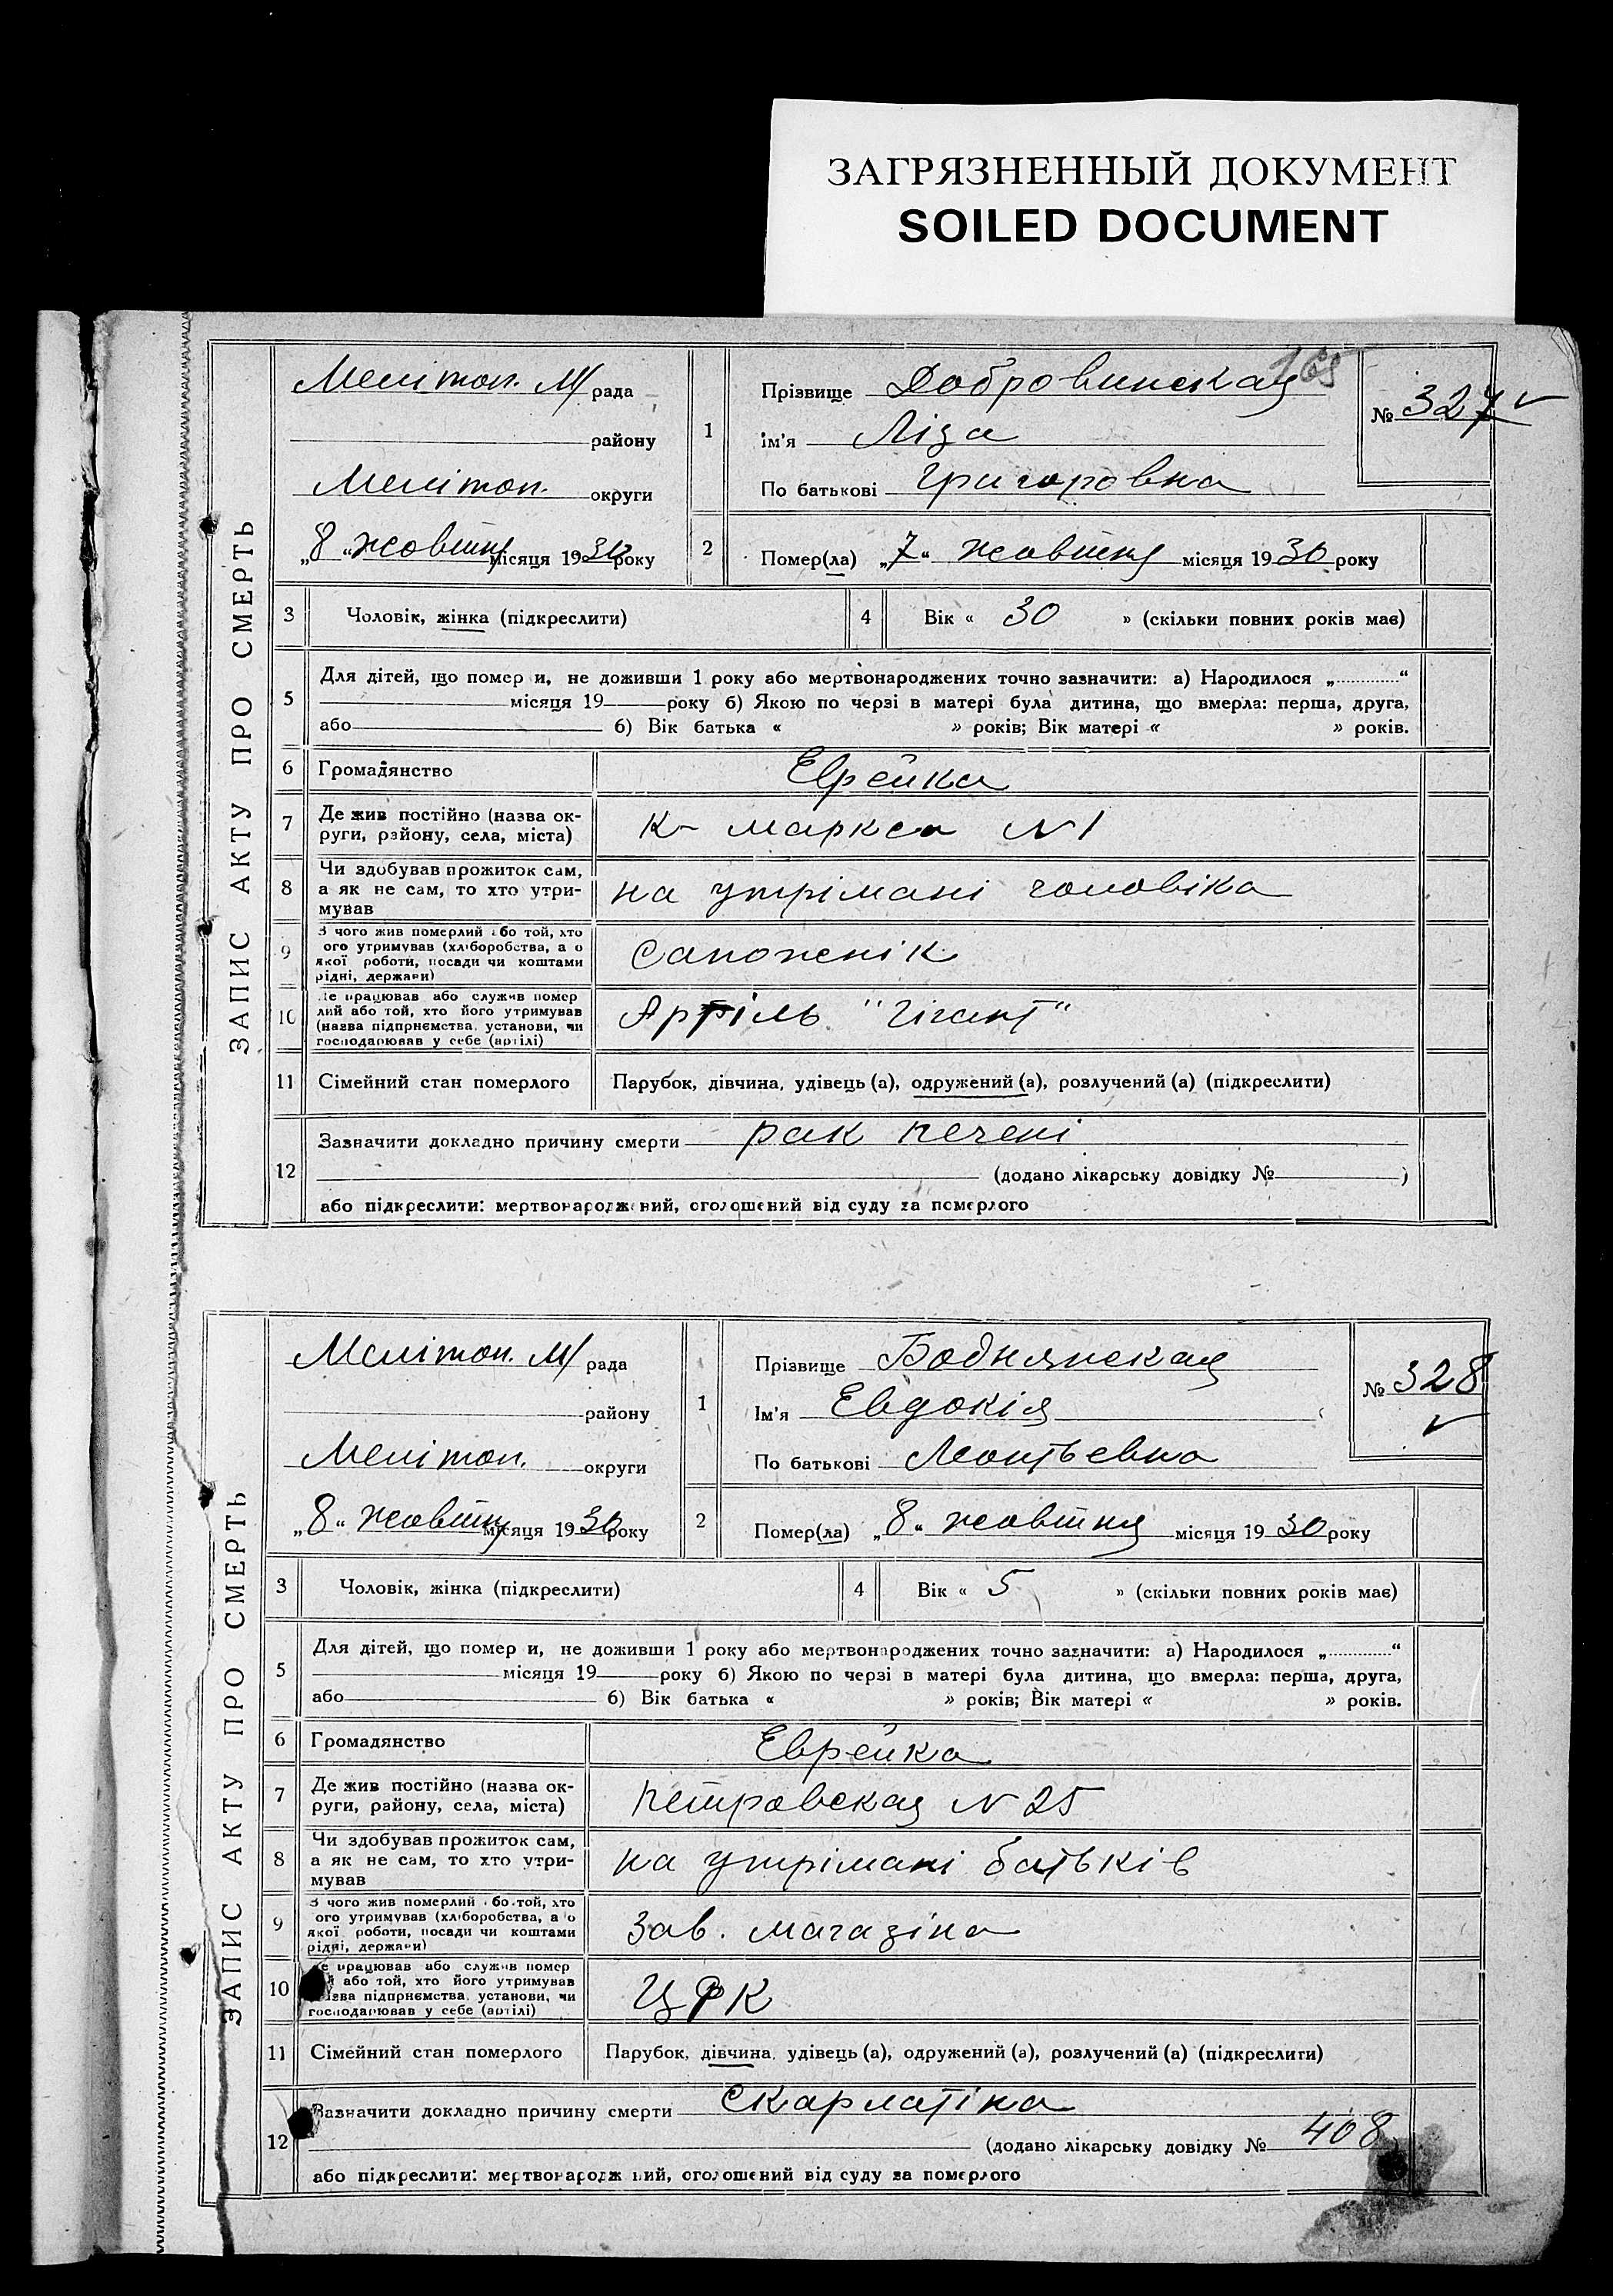 ЗАГРЯЗНЕННЫЙ ДОКУМЕНТ
SOILED DOCUMENT
165
ЗАПИС АКТУ ПРО СМЕРТЬ
Меліпоп. М/ рада
району
Меліпоп. округи
„8“ жовтня місяця 1930 року
1
Прізвище Добровинская
ім'я Ліза
По батькові Григоровна
№ 327
2
Помер(ла) „7“ жовтня місяця 1930 року
3 Чоловік, жінка (підкреслити)
4 Вік « 30 » (скільки повних років має)
5
Для дітей, що помер и, не доживши 1 року або мертвонароджених точно зазначити: а) Народилося „ “
місяця 19 року б) Якою по черзі в матері була дитина, що вмерла: перша, друга,
або б) Вік батька « » років; Вік матері « » років.
6 Громадянство Еврейка
7 Де жив постійно (назва ок-
руги, району, села, міста)
К- Маркса N 1
8 Чи здобував прожиток сам,
а як не сам, то хто утри-
мував
на утрімані чоловіка
9 З чого жив померлий або той, хто
ого утримував (хліборобства, а о
якої роботи, посади чи коштами
рідні, держави)
Сапоженік
10 Де працював або служив помер
лий або той, хто його утримував
(назва підпрнємства, установи, чи
господарював у себе (артілі)
Артіль "Гігант"
11 Сімейний стан померлого Парубок, дівчина, удівець (а), одружений (а), розлучений (а) (підкреслити)
12
Зазначити докладно причину смерти рак печені
(додано лікарську довідку № )
або підкреслити: мертвонароджений, оголошений від суду за померлого
ЗАПИС АКТУ ПРО СМЕРТЬ
Меліпоп. М/ рада
району
Меліпоп. округи
„8“ жовтня місяця 1930 року
1
Прізвище Боднянская
Ім'я Евдокія
По батькові Леонтьевна
№ 328
2
Помер(ла) „8“ жовтня місяця 1930 року
3 Чоловік, жінка (підкреслити)
4 Вік « 5 » (скільки повних років має)
5
Для дітей, що помер и, не доживши 1 року або мертвонароджених точно зазначити: а) Народилося „ “
місяця 19 року б) Якою по черзі в матері була дитина, що вмерла: перша, друга,
або б) Вік батька « » років; Вік матері « » років.
6 Громадянство Еврейка
7 Де жив постійно (назва ок-
руги, району, села, міста)
Петровская N 25
8 Чи здобував прожиток сам,
а як не сам, то хто утри-
мував
на утрімані батьків
9 З чого жив померлий або той, хто
ого утримував (хліборобства, а о
якої роботи, посади чи коштами
рідні, держави)
Зав. магазіна
10 Де працював або служив помер
або той, хто його утримував
назва підпрнємства, установи, чи
господарював у себе (артілі)
ЦРК
11 Сімейний стан померлого Парубок, дівчина, удівець (а), одружений (а), розлучений (а) (підкреслити)
12
Зазначити докладно причину смерти Скарлатіна
(додано лікарську довідку № 408)
або підкреслити: мертвонароджений, оголошений від суду за померлого